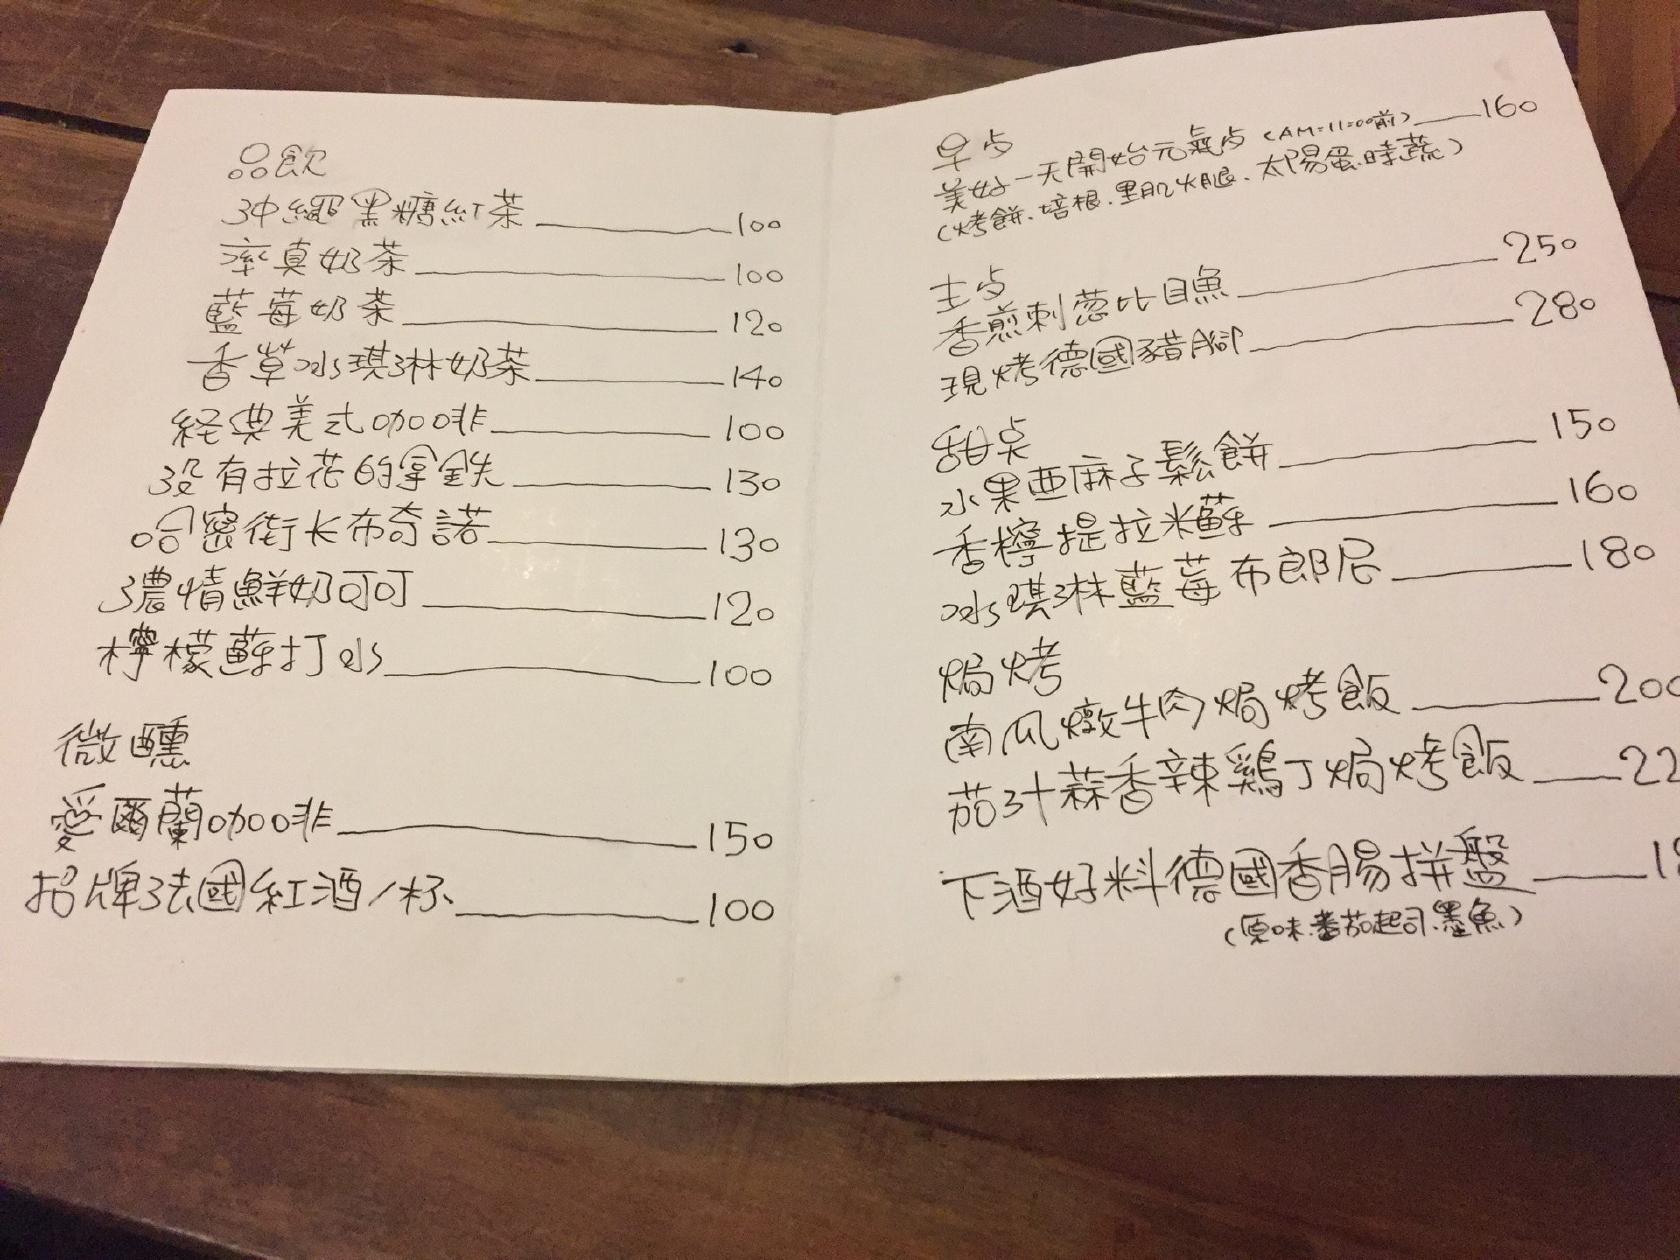 品飲
沖繩黑糖紅茶 100
率真奶茶 100
藍莓奶茶 120
香草冰琪淋奶茶 140
経典美式咖啡 100
沒有拉花的拿鉄 130
哈密街卡布奇諾 130
濃情鮮奶可可 120
檸檬蘇打水 100
微醺
愛爾蘭咖啡 150
招牌法國紅酒/杯 100
早点
美好一天開始元氣点 (AM=11=00前) 160
(烤餅、培根、里肌火腿、太陽蛋、時蔬)
主点
香煎刺葱比目魚 250
現烤德國豬腳 280
甜点
水果亞麻子鬆餅 150
香檸提拉米蘇 160
冰琪淋藍莓布郎尼 180
焗烤
南瓜燉牛肉焗烤飯 200
茄汁蒜香辣鷄丁焗烤飯 22
下酒好料德國香腸拼盤 18
(原味、番茄起司、墨魚)